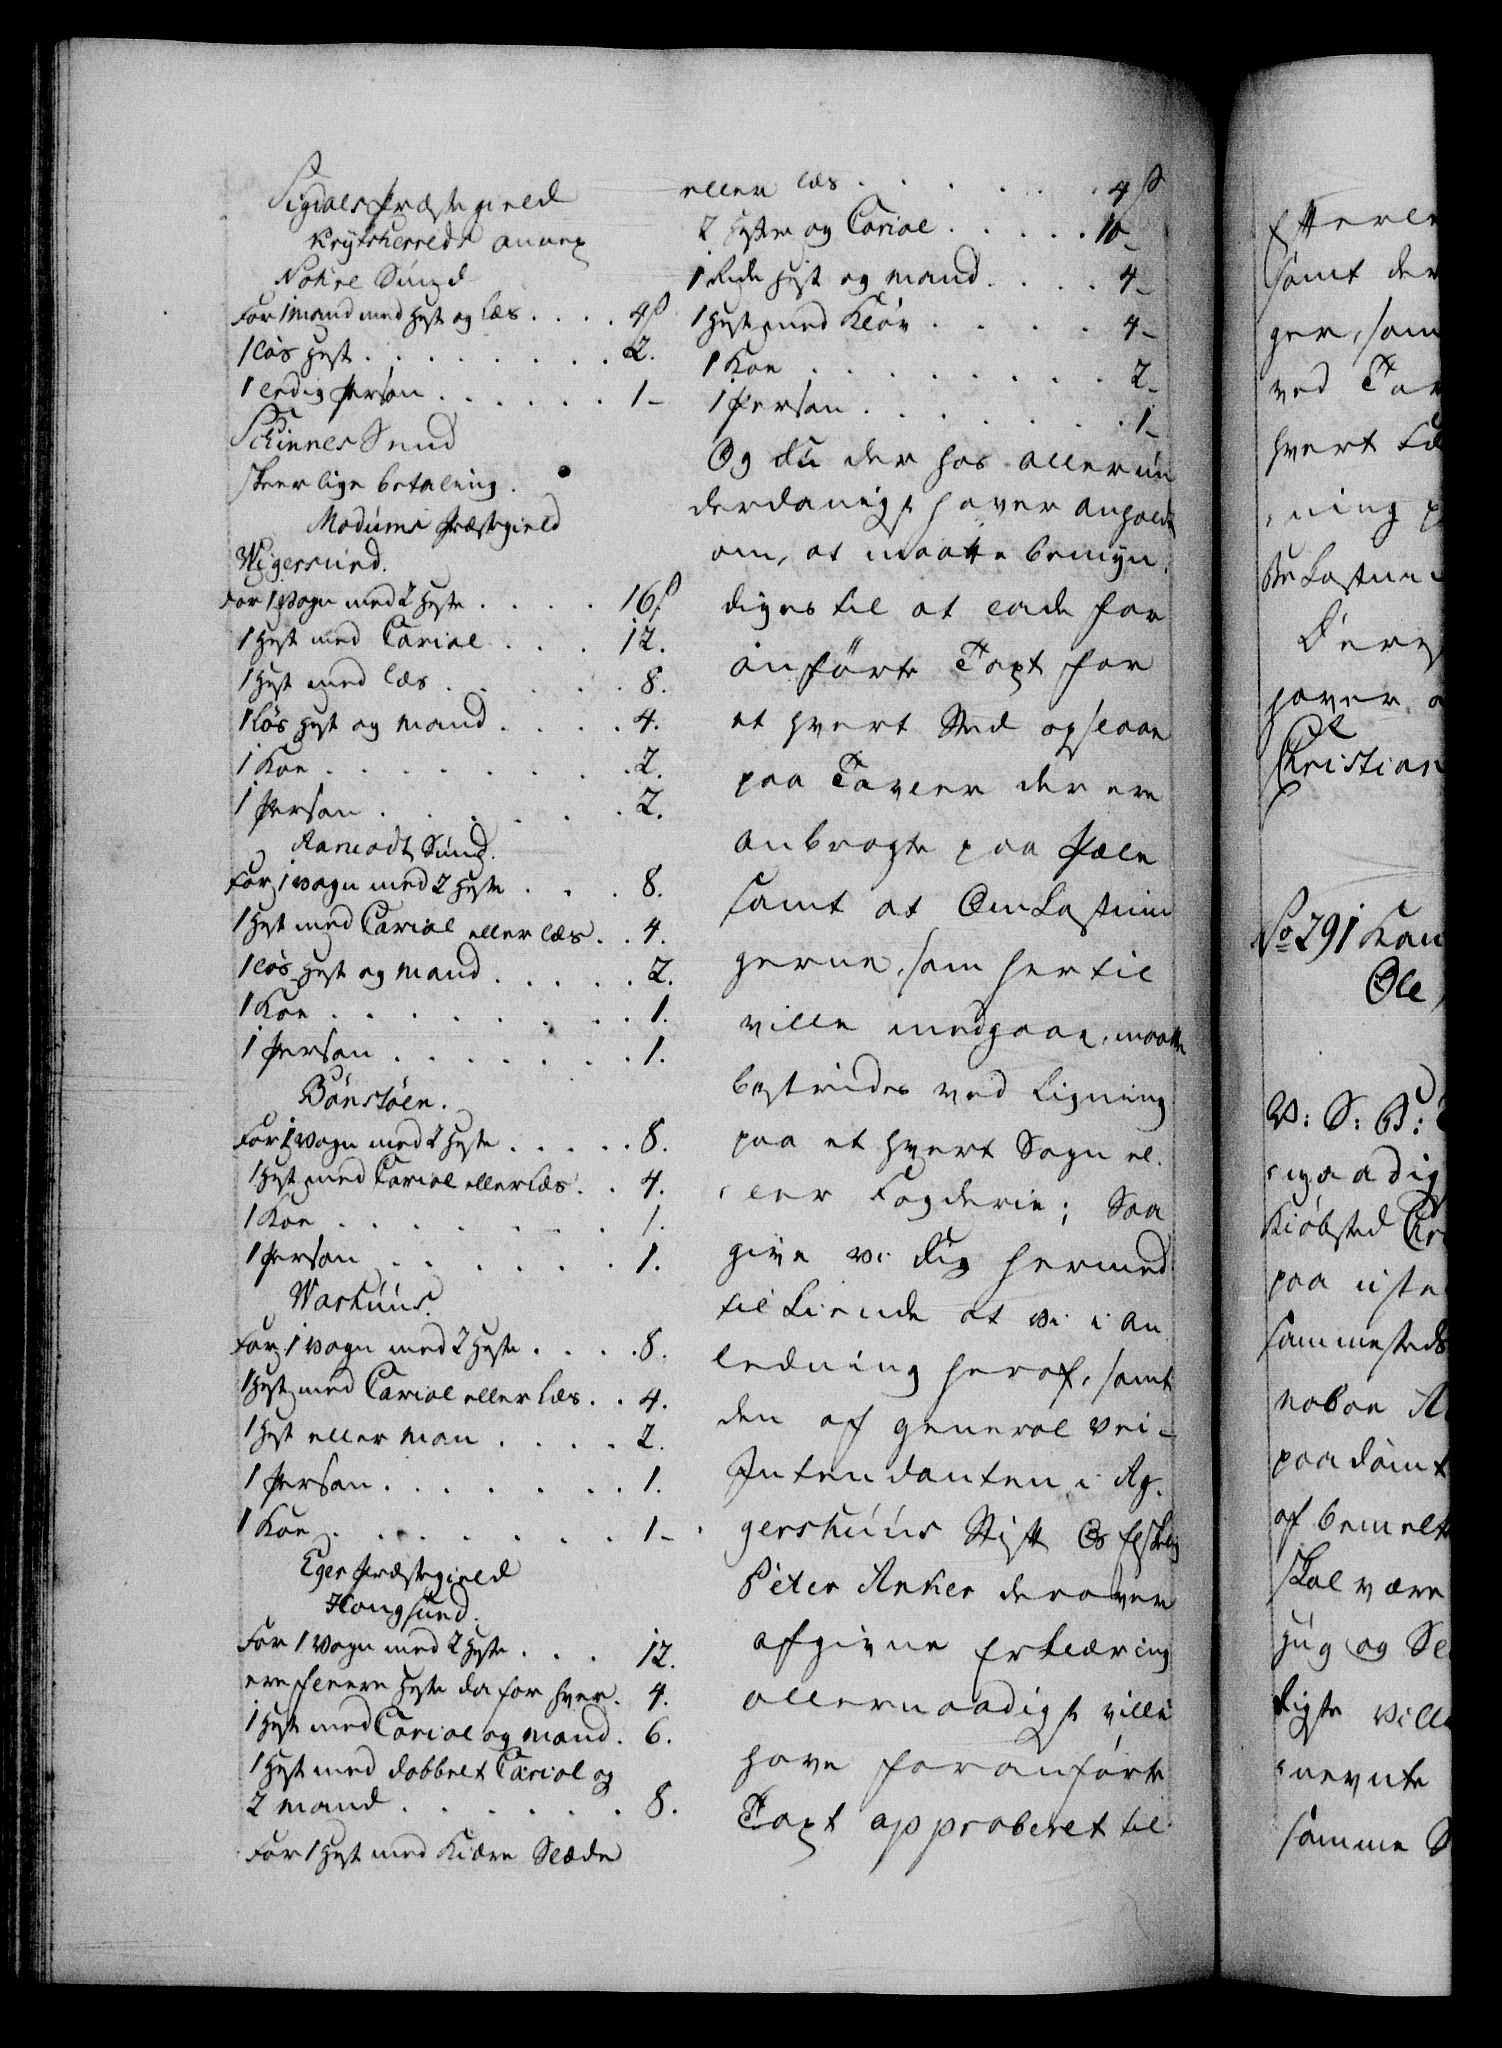 Sigdals Præstegield
Krydsherreds annex
Nakre Sund
For 1 mand med Hest og læs . . . . 4 ß
1 løs Hest . . . . . . . . 2.
1 ledig Person . . . . . . 1 -
Skinnes Sund
skeer lige betaling.
Modums Præstegield
Wigersund.
For 1 Vogn med 2 Heste . . . . 16 ß
1 Hest med Cariol . . . 12.
1 Hest med læs . . . . . 8.
1 løs Hest og mand . . . . 4.
1 Koe . . . . . . . . 2.
1 Person . . . . . . 2.
Sund.
For 1 vogn med 2 Heste . . . 8.
1 Hest med Cariol eller læs . . 4.
1 løs Hest og mand . . . . . 2.
1 Koe . . . . . . . . 1.
1 Person . . . . . . . 1.
Bønstøen.
For 1 Vogn med 2 Heste . . . . . 8.
1 Hest med Cariol eller Læs . . 4.
1 Koe . . . . . . . . 1.
1 Person . . . . . . . 1.
Warhuus.
For 1 vogn med 2 Heste . . . . 8.
1 Hest med Cariol eller læs . . 4.
1 Hest eller man . . . . 2.
1 Person . . . . . . . 1.
1 Koe . . . . . . . 1 -
Eger Præstegield
Hougsund.
For 1 Vogn med 2 Heste . . . 12.
ere fleere Heste da for hver . 4.
1 Hest med Cariol og mand . 6.
1 Hest med dobbelt Cariol og
2 mand . . . . . . . 8.
For 1 Hest med Kiøre Slæde
eller læs . . . . . . . 4 ß
2 Heste og Cariol . . . . . 10 -
1 Ride Hest og mand . . . . 4 -
1 Hest med Kløv . . . . . 4 -
1 Koe . . . . . . . . . 2 -
1 Person . . . . . . . 1 -
Og du der hos allerun
derdanigst haver anholdt
om, at maatte bemyn
diges til at lade for
anførte Taxt for
et hvert Sted opslaae
paa Tavler der ere
anbragte paa Pæle
samt at Omkostnin
gerne, som hertil
ville medgaae, maatte
bestrides ved Ligning
paa et hvert Sogn el
ler Fogderie; Saa
give vi dig hermed
tilkiende at vi i An
ledning heraf, samt
den af General Vei-
Intendanten i Ag-
gershuus Stift Os elskelig
Peter Anker derover
afgivne Erklæring
allernaadigst ville
have foranførte
Taxt approberet til
Efterle
samt der
ger, som
ved Tav
hvert
ning p
Omkostnin
Dere
haver a
Christian
No 291 Kon
Ole
V: S: B:
naadig
Kiøbsted Chr
paa
sammesteds
naboe A
paadømt
af bemelte
skal være
hug og Se
digste ville
nevnte
samme S